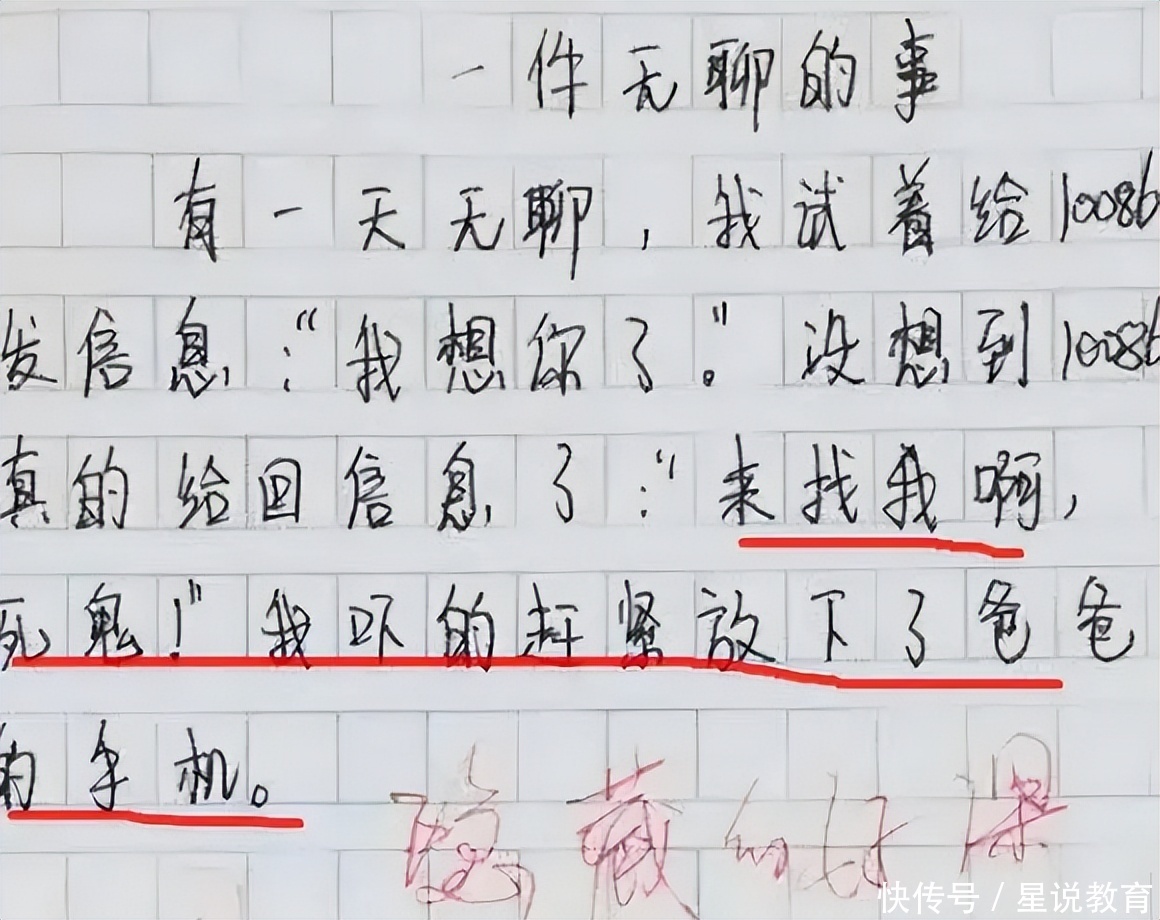 一件无聊的事
有一天无聊，我试着给10086
发信息：“我想你了。”没想到10086
真的给回信息了：“来找我啊，
死鬼！”我吓的赶紧放下了爸爸
的手机。
隐藏的好深
快传号／星说教育